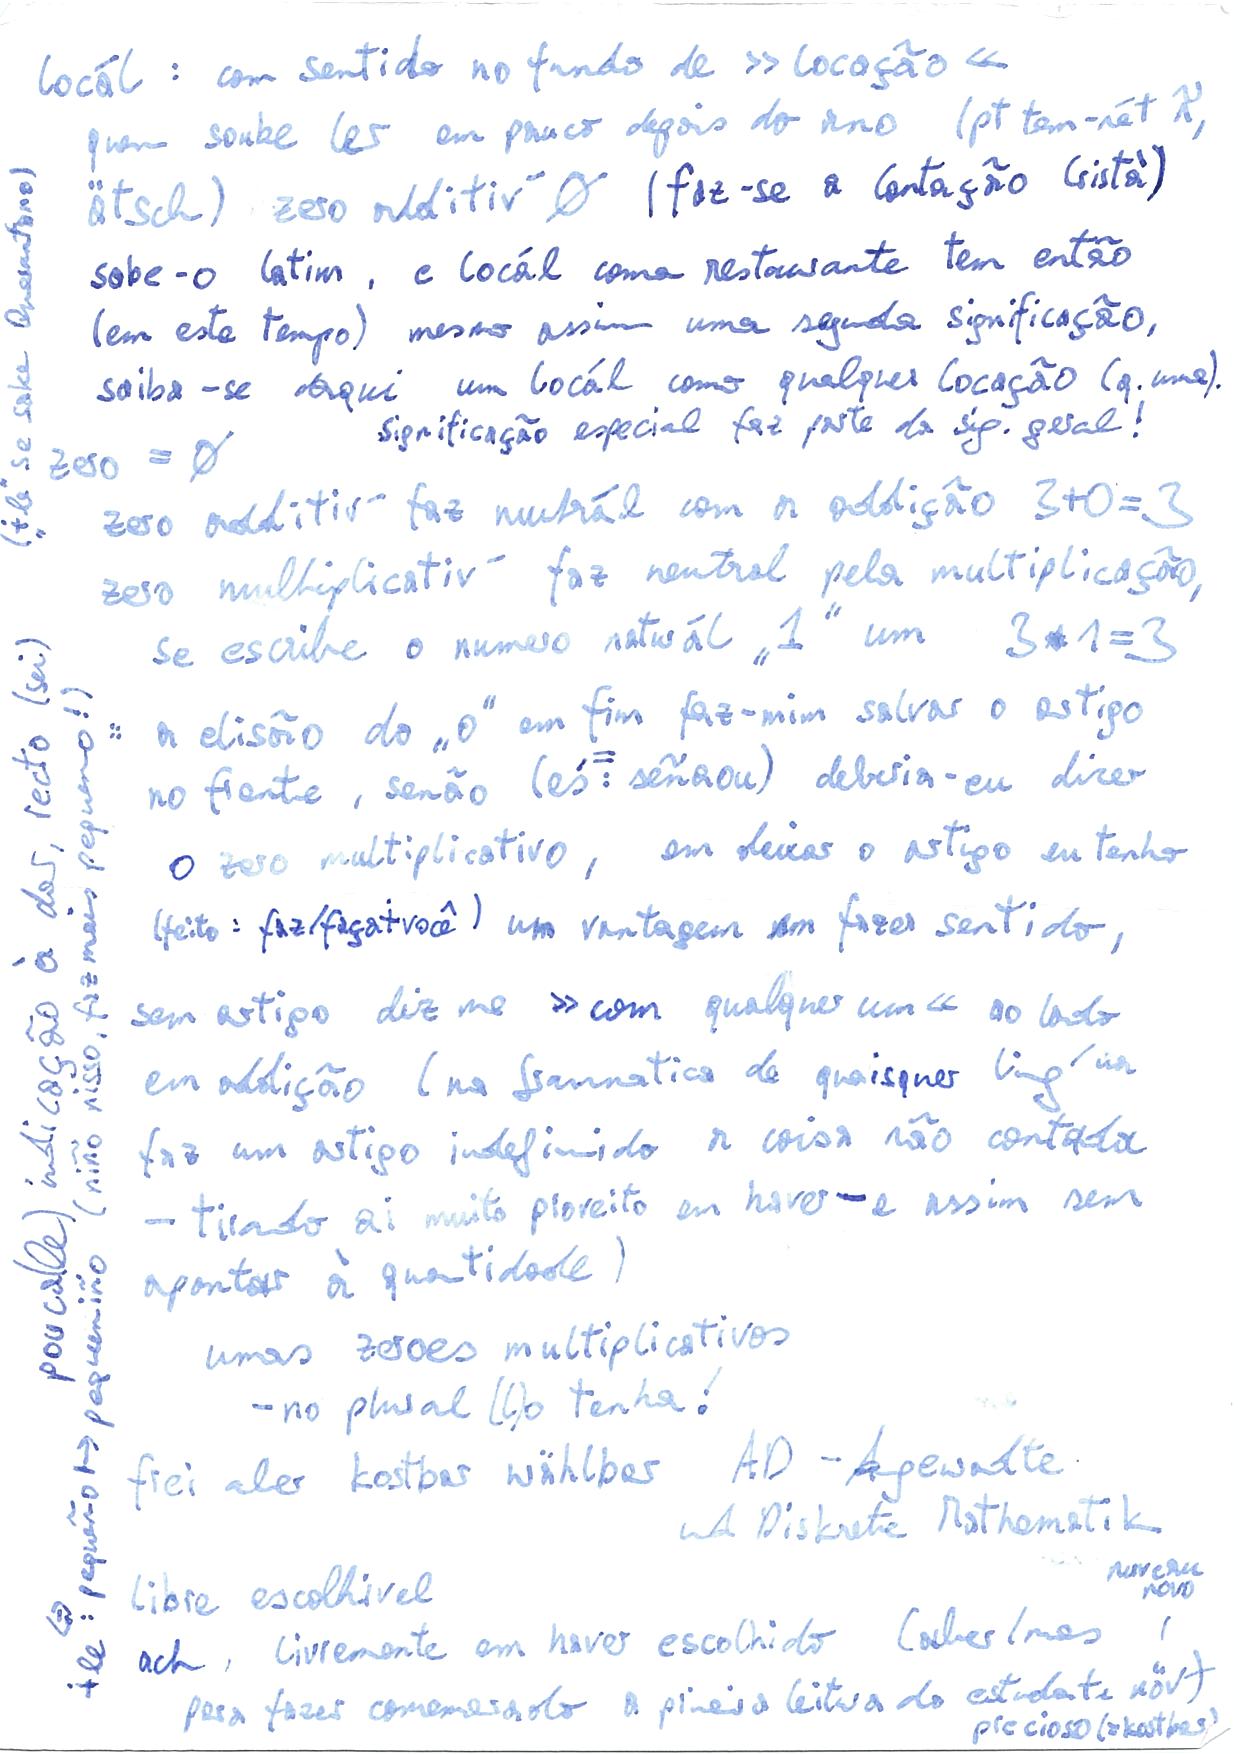 locál : com sentido no fundo de »locação«
quem soube ler em pouco depois do ano (pt tem-nét
ätsch) zero additiv- Ø (faz-se a contação cristã)
sabe-o latim, e locál como restaurante tem então
(em este tempo) mesmo assim uma segunda significação,
saiba-se daqui um locál como qualquer locação (q. uma).
significação especial faz parte da sig. geral!
zero = Ø
zero additiv- faz neutrál com a addição 3+0=3
zero multiplicativ- faz neutral pela multiplicação,
se escribe o numero naturál „1“ um 3*1=3
a elisão do „o“ em fim faz-mim salvar o artigo
no frente, senão (es: señaou) deberia-eu dizer
o zero multiplicativo, em deixar o artigo eu tenho
(feito: faz/faça+você) um vantagem em fazer sentido,
sem artigo diz me »com qualquer um« ao lado
em addição (na grammatica de quaisquer
faz um artigo indefinido a coisa não contada
- tirado ai muito proveito em haver-e assim sem
apontar à quantidade)
umas zeroes multiplicativos
- no plural (l)o tenha!
frei aber kostbar wählbar AD - Angewandte
und Diskrete Mathematik
libre escolhivel
nuveau
novo
ach, livremente em haver escolhido (aber/mas
para fazer comemorado a leitura do estudante növ)
precioso (≈kostbar)
se sabe
poucalle) indicação à dar, recto (sei)
+le : pequeño ↦ pequeniño (niño nisso, fiz mais pequeno!)